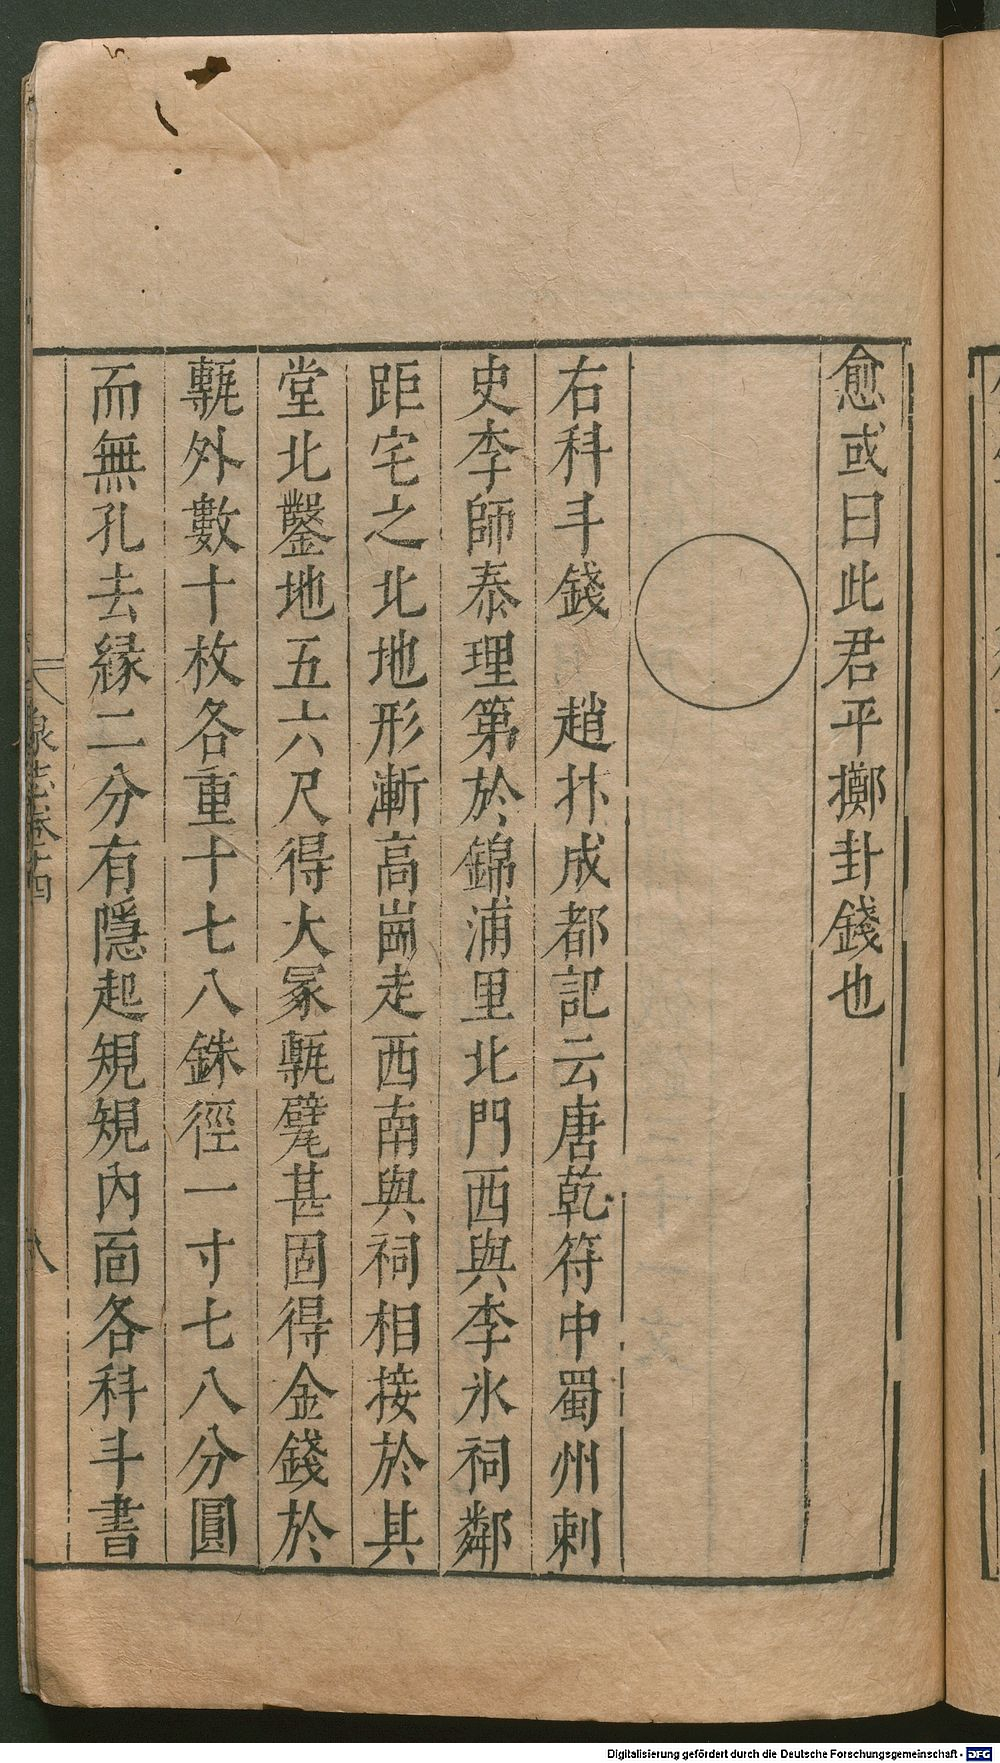 愈或曰此君平擲卦錢也
右科斗錢　趙抃成都記云唐乾符中蜀州刺
史李師泰理第於錦浦里北門西與李氷祠鄰
距宅之北地形漸高崗走西南與祠相接於其
堂北鑿地五六尺得大冢甎甓甚固得金錢於
甎外數十枚各重十七八銖徑一寸七八分圓
而無孔去緣二分有隱起規規內面各科斗書
泉志卷十四
八
Digitalisierung gefördert durch die Deutsche Forschungsgemeinschaft - DFG